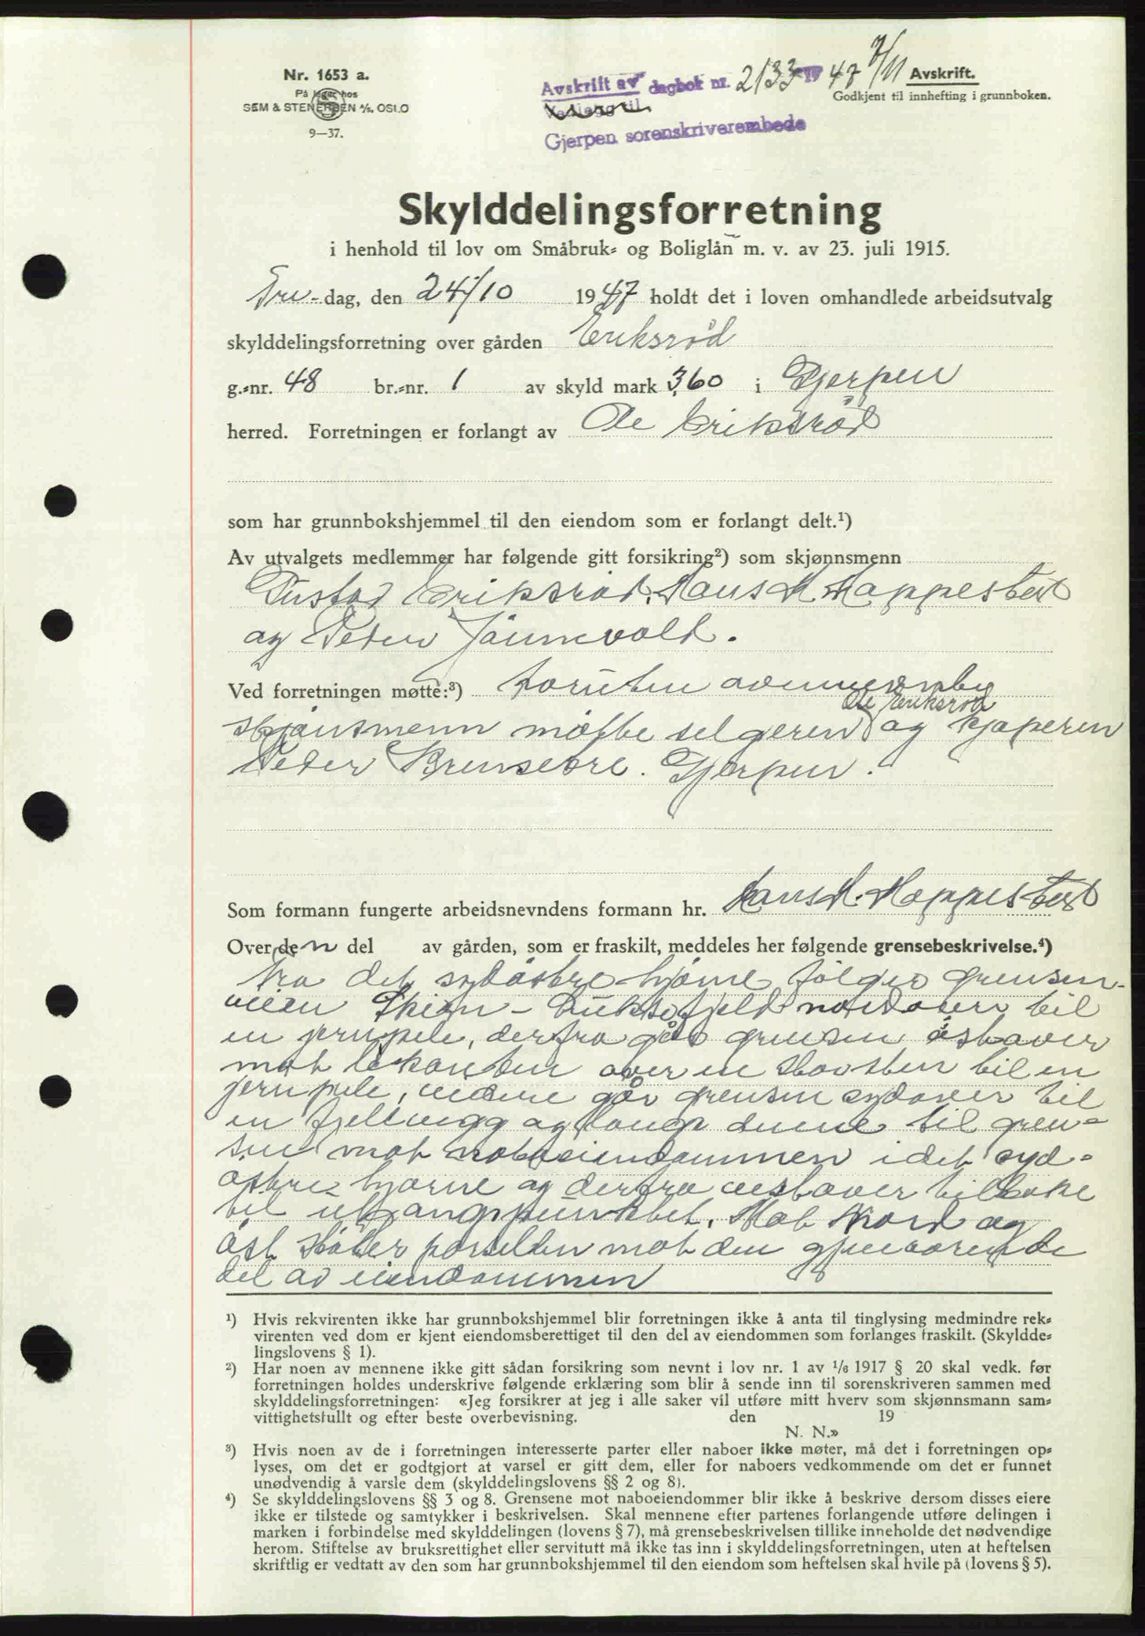 Nr. 1653 a.
På lager hos
SEM & STENERSEN A/S. OSLO
9—37.
Avskrift av dagbok nr. 2133 1947 7/11
Vedlegg til
Gjerpen sorenskriverembede
Avskrift.
Godkjent til innhefting i grunnboken.
Skylddelingsforretning
i henhold til lov om Småbruk- og Boliglån m. v. av 23. juli 1915.
Fre-dag, den 24/10 1947 holdt det i loven omhandlede arbeidsutvalg
skylddelingsforretning over gården Eriksrød
g.-nr. 48 br.-nr. 1 av skyld mark 3,60 i Gjerpen
herred. Forretningen er forlangt av Ole Eriksrød
som har grunnbokshjemmel til den eiendom som er forlangt delt.¹)
Av utvalgets medlemmer har følgende gitt forsikring²) som skjønnsmenn
Gustav Eriksrød, Hans M. Høppestad
og Peder Jønnevold.
Ved forretningen møtte:³) foruten ovennevnte
skjønsmenn møtte selgeren Ole Eriksrød og kjøperen
Peder Brensetre. Gjerpen.
Som formann fungerte arbeidsnevndens formann hr. Hans M. Høppestad
Over den del av gården, som er fraskilt, meddeles her følgende grensebeskrivelse.⁴)
Fra det sydøstre hjørne følger grensen
veien Skien - nordover til
en jernpele, derfra går grensen østover
mot over en til en
jernpele, videre går grensen sydover til
en fjellvegg og langs denne til gren-
sen mot naboeiendommen i det syd-
østre hjørne og derfra vestover tilbake
til utgangspunktet. Mot Nord og
øst støter parsellen mot den gjenværende
del av eiendommen
¹) Hvis rekvirenten ikke har grunnbokshjemmel blir forretningen ikke å anta til tinglysing medmindre rek-
virenten ved dom er kjent eiendomsberettiget til den del av eiendommen som forlanges fraskilt. (Skyldde-
lingslovens § 1).
²) Har noen av mennene ikke gitt sådan forsikring som nevnt i lov nr. 1 av 1/6 1917 § 20 skal vedk. før
forretningen holdes underskrive følgende erklæring som blir å sende inn til sorenskriveren sammen med
skylddelingsforretningen: «Jeg forsikrer at jeg i alle saker vil utføre mitt hverv som skjønnsmann sam-
vittighetsfullt og efter beste overbevisning. den 19
N. N.»
³) Hvis noen av de i forretningen interesserte parter eller naboer ikke møter, må det i forretningen op-
lyses, om det er godtgjort at varsel er gitt dem, eller for naboers vedkommende om det er funnet
unødvendig å varsle dem (skylddelingslovens §§ 2 og 8).
⁴) Se skylddelingslovens §§ 3 og 8. Grensene mot naboeiendommer blir ikke å beskrive dersom disses eiere
ikke er tilstede og samtykker i beskrivelsen. Skal mennene efter partenes forlangende utføre delingen i
marken i forbindelse med skylddelingen (lovens § 7), må grensebeskrivelsen tillike inneholde det nødvendige
herom. Stiftelse av bruksrettighet eller servitutt må ikke tas inn i skylddelingsforretningen, uten at heftelsen
skriftlig er vedtatt av den som har grunnbokshjemmel til den eiendom som heftelsen skal hvile på (lovens § 5).